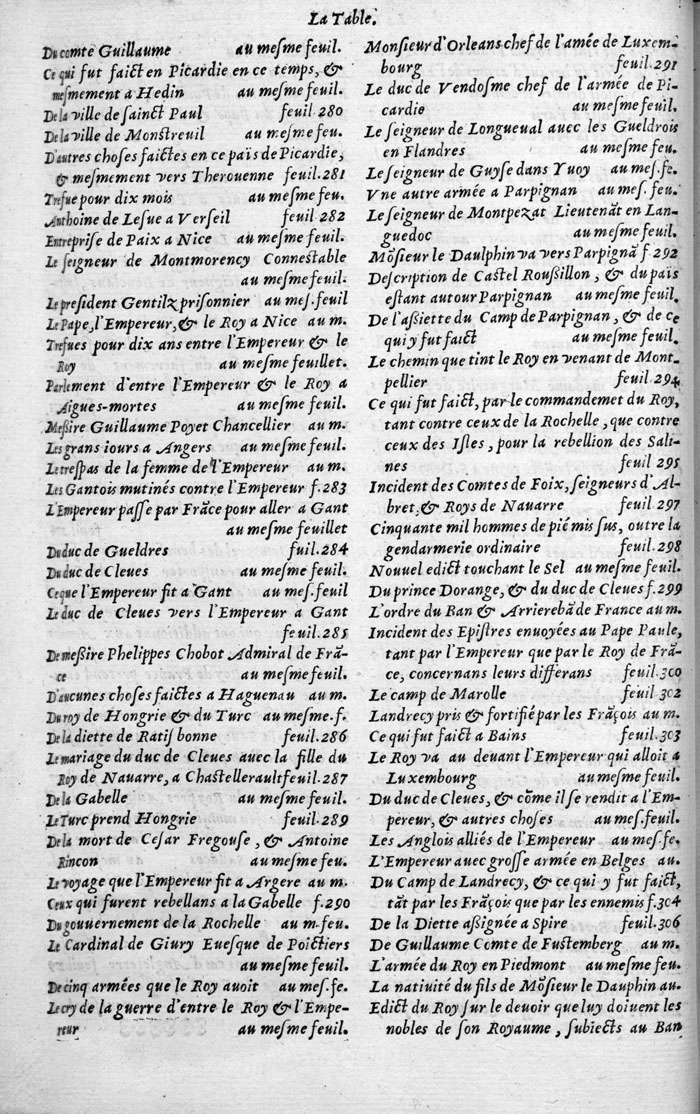 La Table.
Du comte Guillaume au meſme feuil.
Ce qui fut faict en Picardie en ce temps, &
meſmement a Hedin au meſme feuil.
De la ville de ſainct Paul feuil 280
De la ville de Monſtreuil au meſme feu.
D'autres choſes faictes en ce païs de Picardie,
& meſmement vers Therouenne feuil.281
Trefue pour dix mois au meſme feu.
Anthoine de Leſue a Verſeil feuil 282
Entrepriſe de Paix a Nice au meſme feuil.
Le ſeigneur de Montmorency Conneſtable
au meſme feuil.
Le preſident Gentilz priſonnier au meſ.feuil
Le Pape, l'Empereur, & le Roy a Nice au m.
Trefues pour dix ans entre l'Empereur & le
Roy au meſme feuillet.
Parlement d'entre l'Empereur & le Roy a
Aigues-mortes au meſme feuil.
Meſſire Guillaume Poyet Chancellier au m.
Les grans iours a Angers au meſme feuil.
Le treſpas de la femme de l'Empereur au m.
Les Gantois mutinés contre l'Empereur f.283
L'Empereur paſſe par Frãce pour aller a Gant
au meſme feuillet
Du duc de Gueldres fuil.284
Du duc de Cleues au meſme feuil.
Ce que l'Empereur fit a Gant au meſ.feuil
Le duc de Cleues vers l'Empereur a Gant
feuil.285
De meſſire Phelippes Chobot Admiral de Frã-
ce au meſme feuil.
D'aucunes choſes faictes a Haguenau au m.
Du roy de Hongrie & du Turc au meſme.f.
De la diette de Ratiſbonne feuil.286
Le mariage du duc de Cleues auec la fille du
Roy de Nauarre, a Chaſtellerault feuil.287
De la Gabelle au meſme feuil.
Le Turc prend Hongrie feuil.289
De la mort de Ceſar Fregouſe, & Antoine
Rincon au meſme feu.
Le voyage que l'Empereur fit a Argere au m.
Ceux qui furent rebellans a la Gabelle f.290
Du gouuernement de la Rochelle au m.feu.
Le Cardinal de Giury Eueſque de Poictiers
au meſme feuil.
De cinq armées que le Roy auoit au meſ.fe.
Le cry de la guerre d'entre le Roy & l'Empe-
reur au meſme feuil.
Monſieur d'Orleans chef de l'amée de Luxem-
bourg feuil.291
Le duc de Vendoſme chef de l'armée de Pi-
cardie au meſme feuil.
Le ſeigneur de Longueual auec les Gueldrois
en Flandres au meſme feu.
Le ſeigneur de Guyſe dans Yuoy au meſ.fe.
Vne autre armée a Parpignan au meſ. feu.
Le ſeigneur de Montpezat Lieutenãt en Lan-
guedoc au meſme feuil.
Mõſieur le Daulphin va vers Parpignã f 292
Deſcription de Caſtel Rouſſillon, & du païs
eſtant autour Parpignan au meſme feuil.
De l'aſſiette du Camp de Parpignan, & de ce
qui y fut faict au meſme feuil.
Le chemin que tint le Roy en venant de Mont-
pellier feuil 294
Ce qui fut faict, par le commandemet du Roy,
tant contre ceux de la Rochelle, que contre
ceux des Iſles, pour la rebellion des Sali-
nes feuil 295
Incident des Comtes de Foix, ſeigneurs d'Al-
bret, & Roys de Nauarre feuil 297
Cinquante mil hommes de pié mis ſus, outre la
gendarmerie ordinaire feuil.298
Nouuel edict touchant le Sel au meſme feuil.
Du prince Dorange, & du duc de Cleues f.299
L'ordre du Ban & Arrierebã de France au m.
Incident des Epiſtres enuoyées au Pape Paule,
tant par l'Empereur que par le Roy de Frã-
ce, concernans leurs differans feuil.300
Le camp de Marolle feuil 302
Landrecy pris & fortifié par les Frãçois au m.
Ce qui fut faict a Bains feuil.303
Le Roy va au deuant l'Empereur qui alloit a
Luxembourg au meſme feuil.
Du duc de Cleues, & cõme il ſe rendit a l'Em-
pereur, & autres choſes au meſ.feuil.
Les Anglois alliés de l'Empereur au meſ.fe.
L'Empereur auec groſſe armée en Belges au.
Du Camp de Landrecy, & ce qui y fut faict,
tãt par les Frãçois que par les ennemis f.304
De la Diette aſſignée a Spire feuil.306
De Guillaume Comte de Fuſtemberg au m.
L'armée du Roy en Piedmont au meſme feu.
La natiuité du fils de Mõſieur le Dauphin au.
Edict du Roy ſur le deuoir que luy doiuent les
nobles de ſon Royaume, ſubiects au Ban